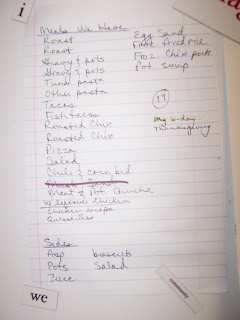 i
Meals We Have
Roast
Roast
Gravy & pots
Gravy & pots
Tuna pasta
Other pasta
Tacos
Fish tacos
Roasted Chix
Roasted Chix
Pizza
Salad
Chili & cornbrd
Meat & Pot
w/leftover chicken
chicken wraps
quesadillas
Egg Sand
Froz. fried rice
Froz. Chix pock
Pot soup
17
My b-day
Thanksgiving
Sides
Asp biscuits
Pots Salad
Zuc
we